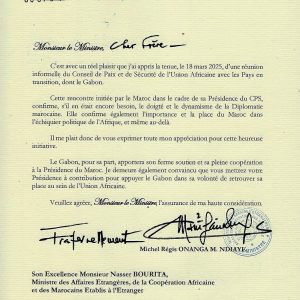 Monsieur le Ministre, Cher Frère
C'est avec un réel plaisir que j'ai appris la tenue, le 18 mars 2025, d'une réunion
informelle du Conseil de Paix et de Sécurité de l'Union Africaine avec les Pays en
transition, dont le Gabon.
Cette rencontre initiée par le Maroc dans le cadre de sa Présidence du CPS,
confirme, s'il en était encore besoin, le doigté et le dynamisme de la Diplomatie
marocaine. Elle confirme également l'importance et la place du Maroc dans
l'échiquier politique de l'Afrique, et même au-delà.
Il me plait donc de vous exprimer toute mon appréciation pour cette heureuse
initiative.
Le Gabon, pour sa part, apportera son ferme soutien et sa pleine coopération
à la Présidence du Maroc. Je demeure également convaincu que vous mettrez votre
Présidence à contribution pour appuyer le Gabon dans sa volonté de retrouver sa
place au sein de l'Union Africaine.
Veuillez agréer, Monsieur le Ministre, l'assurance de ma haute considération.
Fraternellement
Michel Régis ONANGA M. NDIAYE
Son Excellence Monsieur Nasser BOURITA,
Ministre des Affaires Etrangères, de la Coopération Africaine
et des Marocains Etablis à l'Etranger